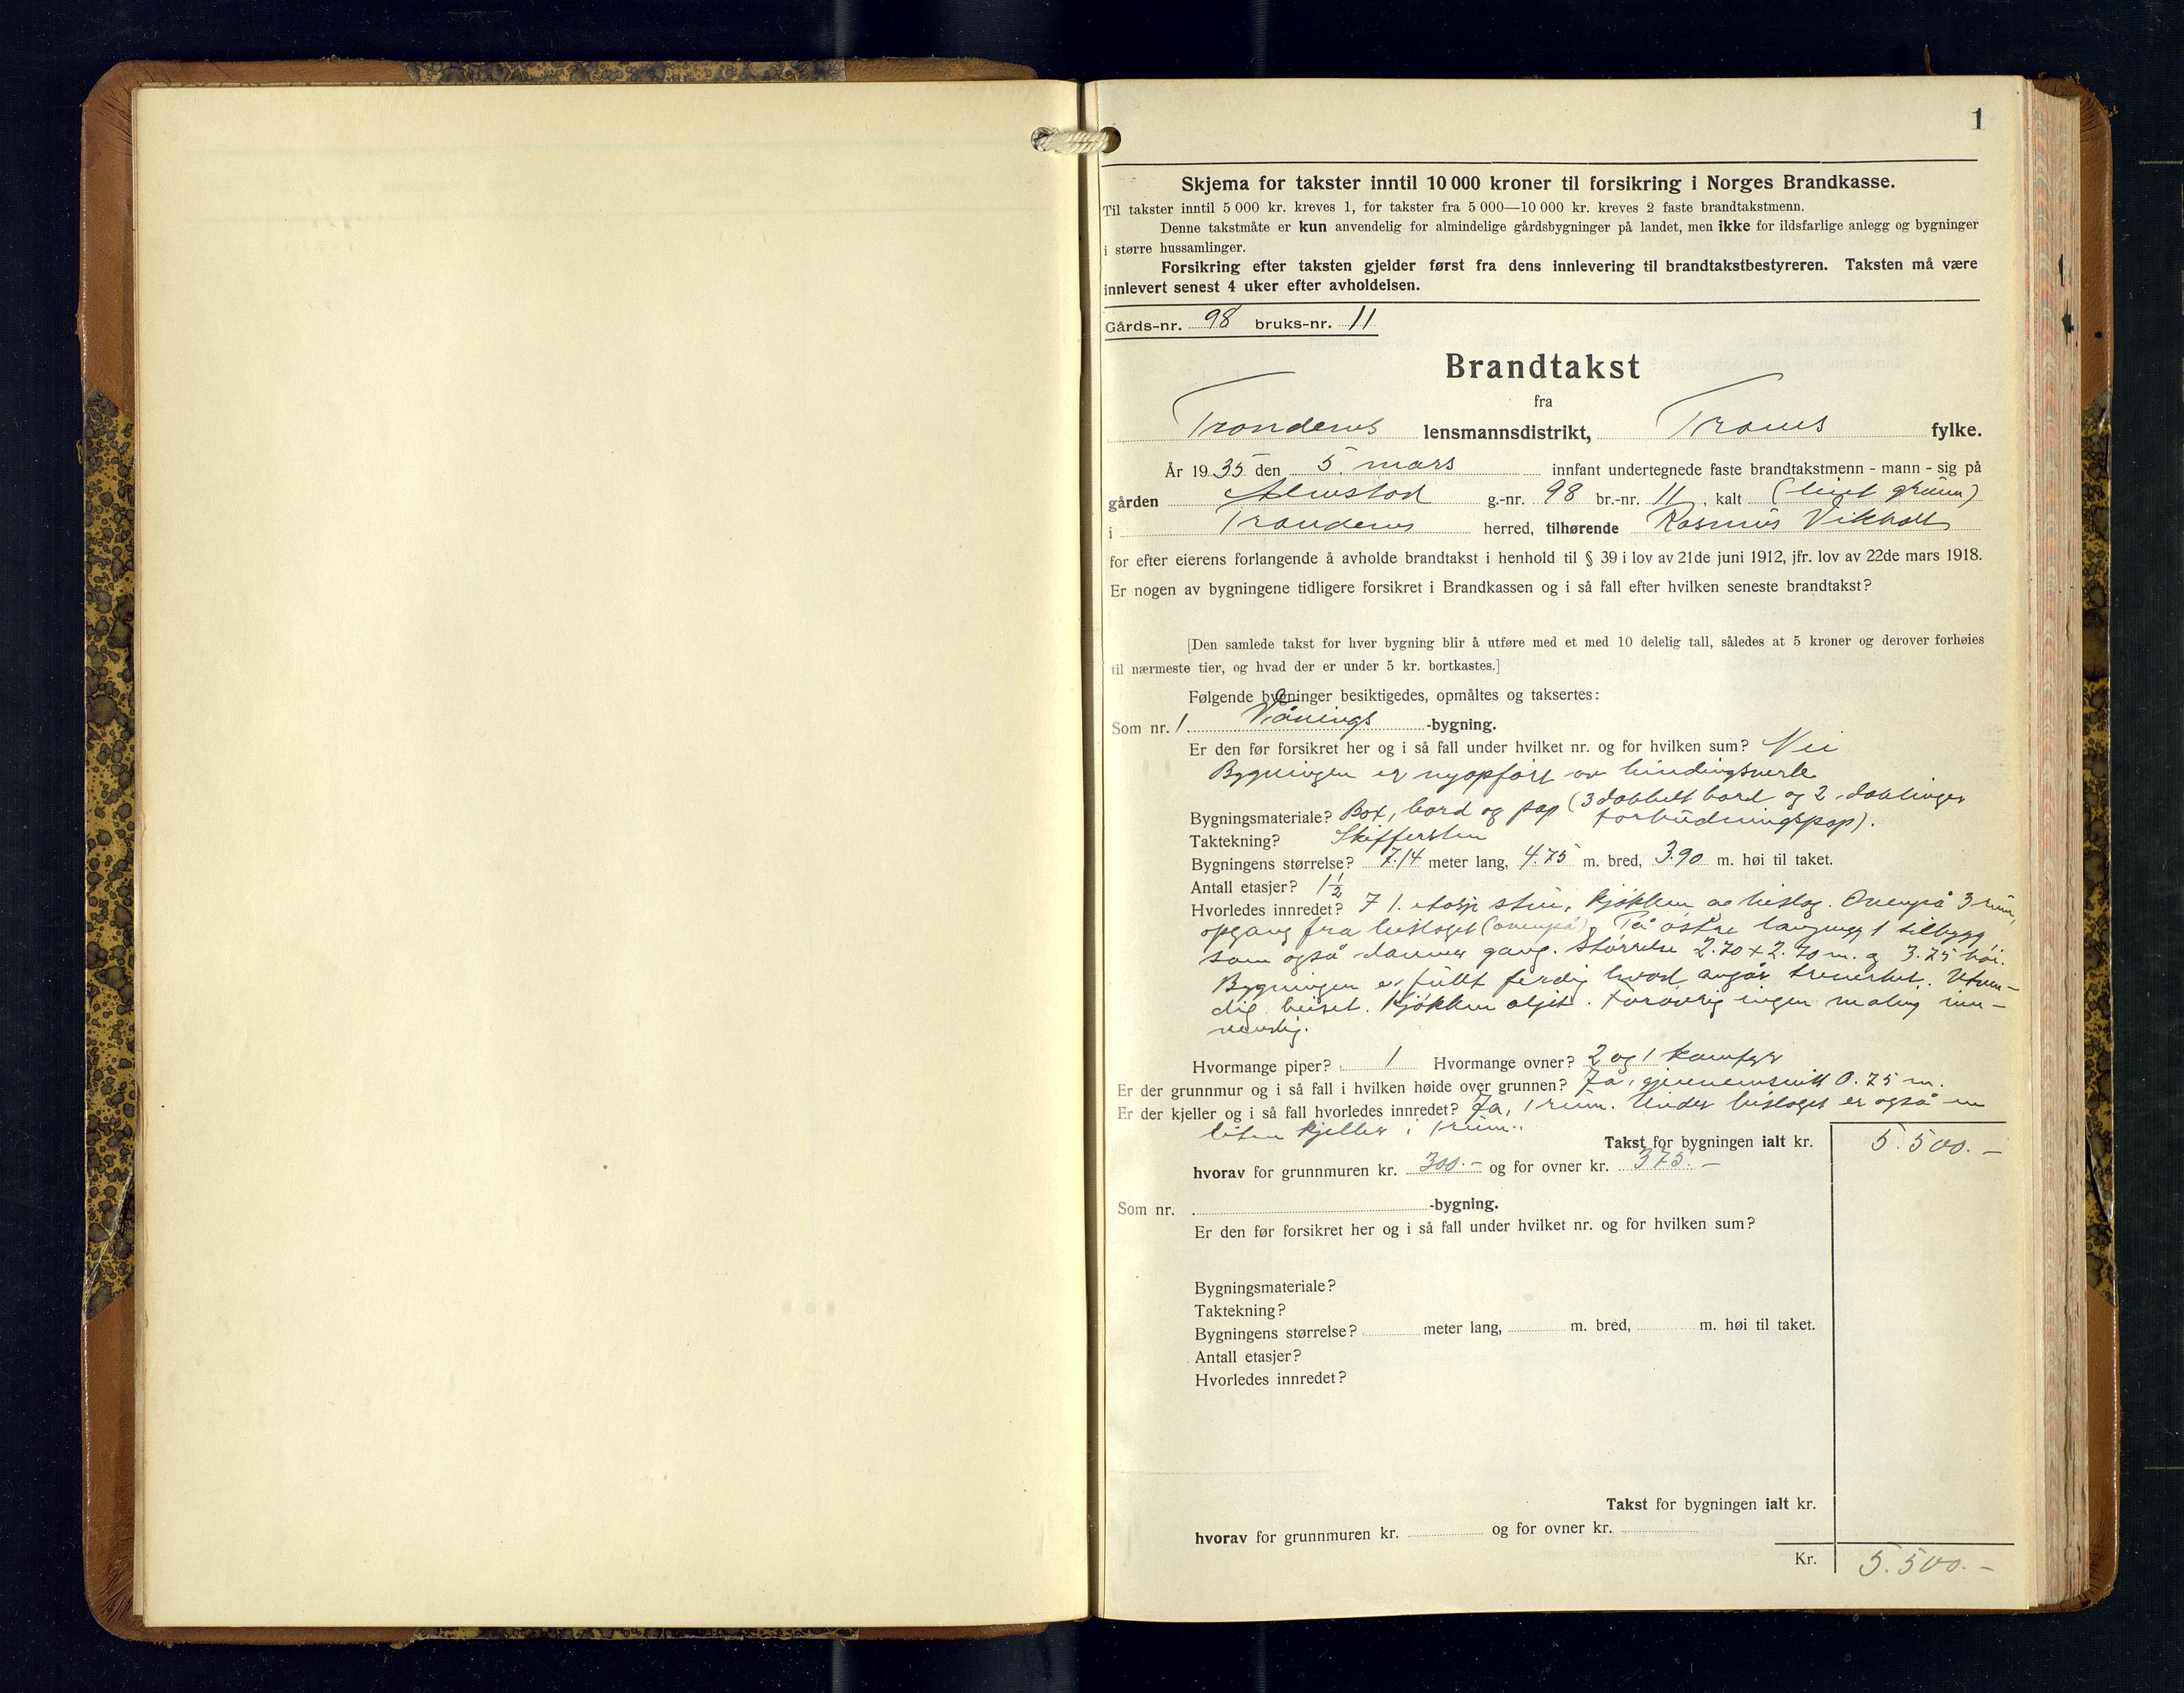 1
Skjema for takster inntil 10 000 kroner til forsikring i Norges Brandkasse.
Til takster inntil 5 000 kr. kreves 1, for takster fra 5 000—10 000 kr. kreves 2 faste brandtakstmenn.
Denne takstmåte er kun anvendelig for almindelige gårdsbygninger på landet, men ikke for ildsfarlige anlegg og bygninger
i større hussamlinger.
Forsikring efter taksten gjelder først fra dens innlevering til brandtakstbestyreren. Taksten må være
innlevert senest 4 uker efter avholdelsen.
Gårds-nr. 98 bruks-nr. 11
Brandtakst
fra
Trondenes lensmannsdistrikt, Troms fylke.
År 1935 den 5. mars innfant undertegnede faste brandtakstmenn - mann - sig på
gården g.-nr. 98 br.-nr. 11, kalt (leiet grunn)
i Trondenes herred, tilhørende Rasmus Vikholt
for efter eierens forlangende å avholde brandtakst i henhold til § 39 i lov av 21de juni 1912, jfr. lov av 22de mars 1918.
Er nogen av bygningene tidligere forsikret i Brandkassen og i så fall efter hvilken seneste brandtakst?
[Den samlede takst for hver bygning blir å utføre med et med 10 delelig tall, således at 5 kroner og derover forhøies
til nærmeste tier, og hvad der er under 5 kr. bortkastes.]
Følgende bygninger besiktigedes, opmåltes og taksertes:
Som nr. 1 Vånings -bygning.
Er den før forsikret her og i så fall under hvilket nr. og for hvilken sum? Nei
Bygningen er nyopført av bindingsverk
Bygningsmateriale? bord og pap (3 dobbelt bord og 2 dobbinger
forhudningspap).
Taktekning? Skiffersten
Bygningens størrelse? 7.14 meter lang, 4.75 m. bred, 3.90 m. høi til taket.
Antall etasjer? 1½
Hvorledes innredet? I 1. etasje stue, kjøkken og bislag. Ovenpå 3 rum,
opgang fra bislaget (ovenpå). På østre langvegg 1 tilbygg,
som også danner gang. Størrelse 2.70 x 2.70 m. og 3.75 høi.
Bygningen er fullt ferdig hvad angår treverket. Utven-
dig beiset. Kjøkken oljet. Forøvrig ingen maling inn-
vendig.
Hvormange piper? 1 Hvormange ovner? 2 og 1 komfyr
Er der grunnmur og i så fall i hvilken høide over grunnen? Ja, gjennemsnitt 0.75 m.
Er der kjeller og i så fall hvorledes innredet? Ja, 1 rum. Under bislaget er også en
liten kjeller i 1 rum.
Takst for bygningen ialt kr. 5.500.-
hvorav for grunnmuren kr. 300.- og for ovner kr. 375.-
Som nr. -bygning.
Er den før forsikret her og i så fall under hvilket nr. og for hvilken sum?
Bygningsmateriale?
Taktekning?
Bygningens størrelse? meter lang, m. bred, m. høi til taket.
Antall etasjer?
Hvorledes innredet?
Takst for bygningen ialt kr.
hvorav for grunnmuren kr. og for ovner kr.
Kr. 5.500.-